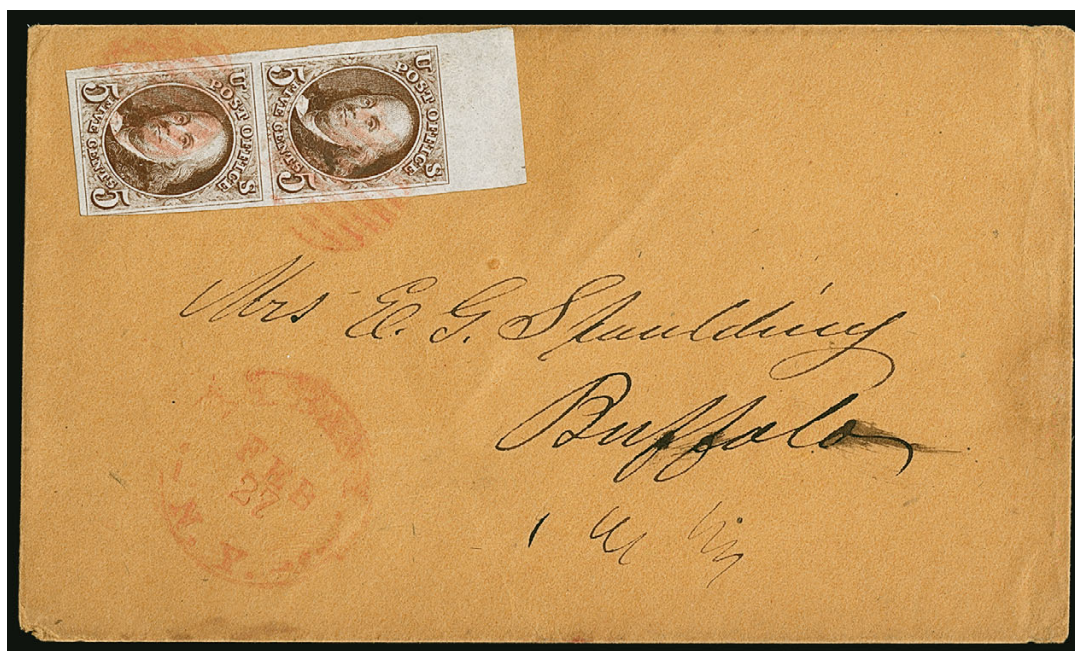 U S
POST OFFICE
FIVE CENTS
5 5
U S
POST OFFICE
FIVE CENTS
5 5
Mrs E. G. Spaulding
Buffalo
FEB
27
N. Y.